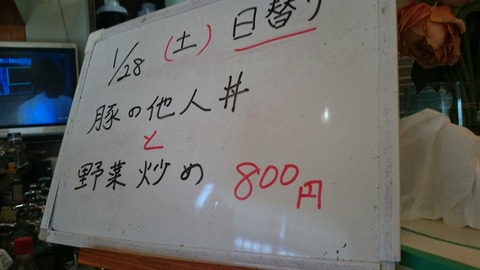 1/28 (土) 日替り
豚の他人丼
と
野菜炒め 800円